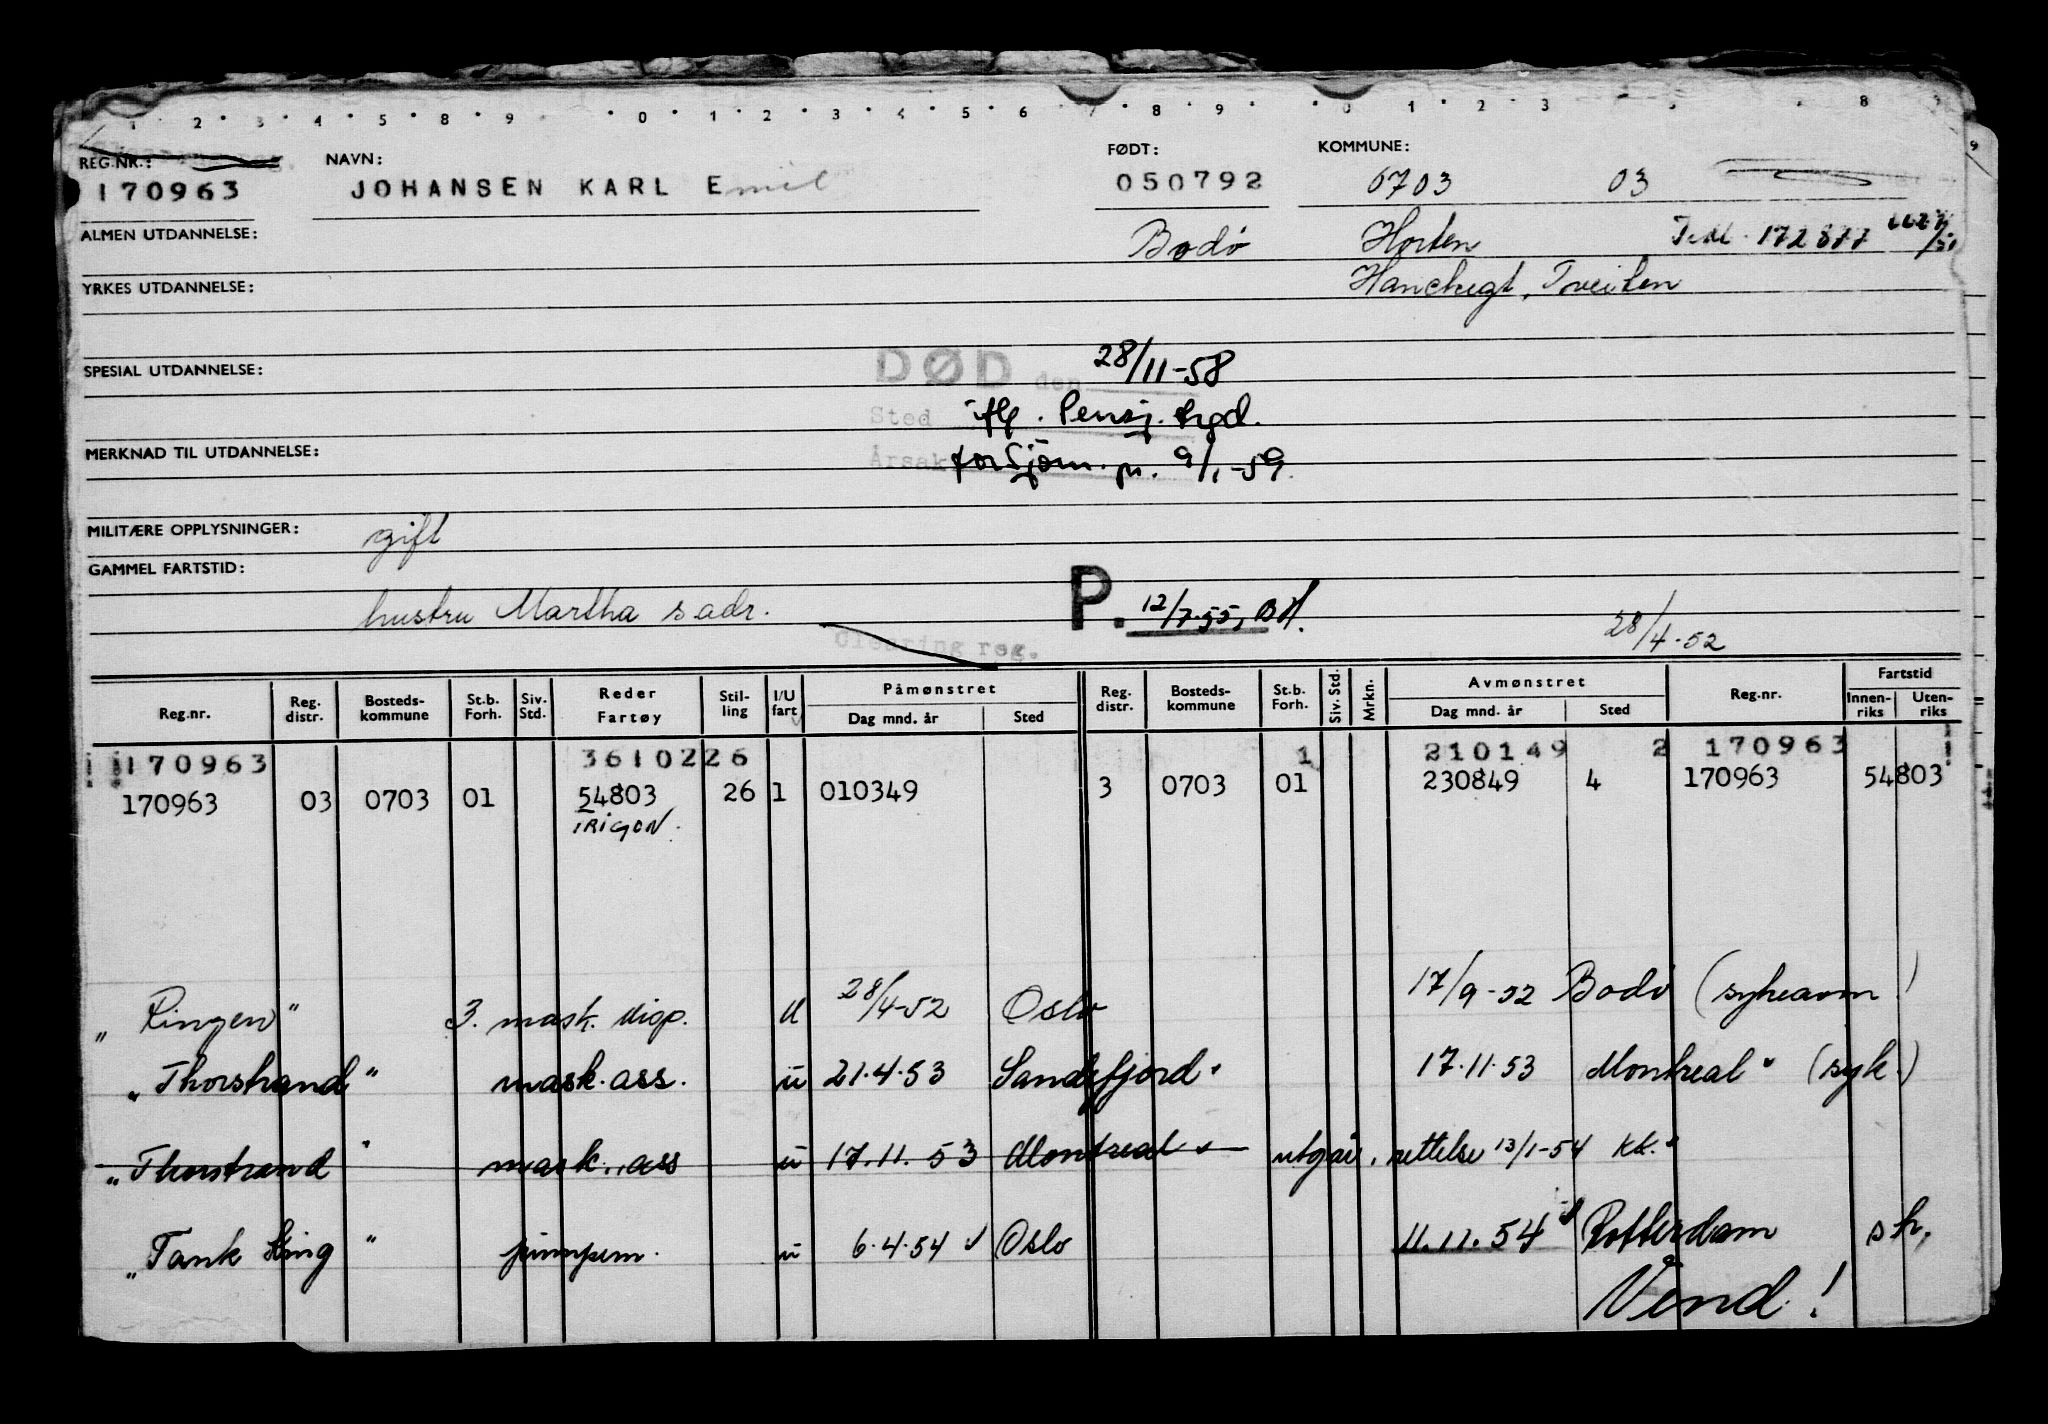 1 · 2 · 3 · 4 · 5 · 8 · 9 · · 0 · 1 · 2 · 3 · 4 · 5 · 6 · 7 · 8 · 9 · · 0 · 1 · 2 · 3 8
REG.NR.: NAVN: FØDT: KOMMUNE:
170963 JOHANSEN KARL Emil 050792 0703 03
ALMEN UTDANNELSE: Bodö Horten 172877
YRKES UTDANNELSE: Tveiten
DØD den 28/11-58
SPESIAL UTDANNELSE:
Sted iflg. Pensj. trygd.
MERKNAD TIL UTDANNELSE: Årsak for Sjöm. pr. 9/1-59.
MILITÆRE OPPLYSNINGER: gift
GAMMEL FARTSTID:
hustru Martha s adr. P. 12/7-55, 28/4-52
Clearing reg.
Reg.nr. Reg. distr. Bosteds-kommune St.b. Forh. Siv. Std. Reder Fartøy Stil-ling I/U fart Påmønstret Dag mnd. år Sted Reg. distr. Bosteds-kommune St.b. Forh. Siv. Std. Mrkn. Avmønstret Dag mnd. år Sted Reg.nr. Fartstid Innen-riks Uten-riks
170963 3610226 1 210149 2 170963
170963 03 0703 01 54803 26 1 010349 3 0703 01 230849 4 170963 54803
TRIGON.
"Ringen" 3. mask. disp. u 28/4-52 Oslo 17/9-52 Bodö (sykeavm!
"Thorstrand" mask. ass. u 21.4.53 Sandefjord 17.11.53 Montreal (syk.)
"Thorstrand" mask. ass u 17.11.53 Montreal utgår, rettelse 13/1-54 Kk.
"Tank King" pumpem. u 6.4.54 Oslo 11.11.54 Rotterdam sk.
Vend!